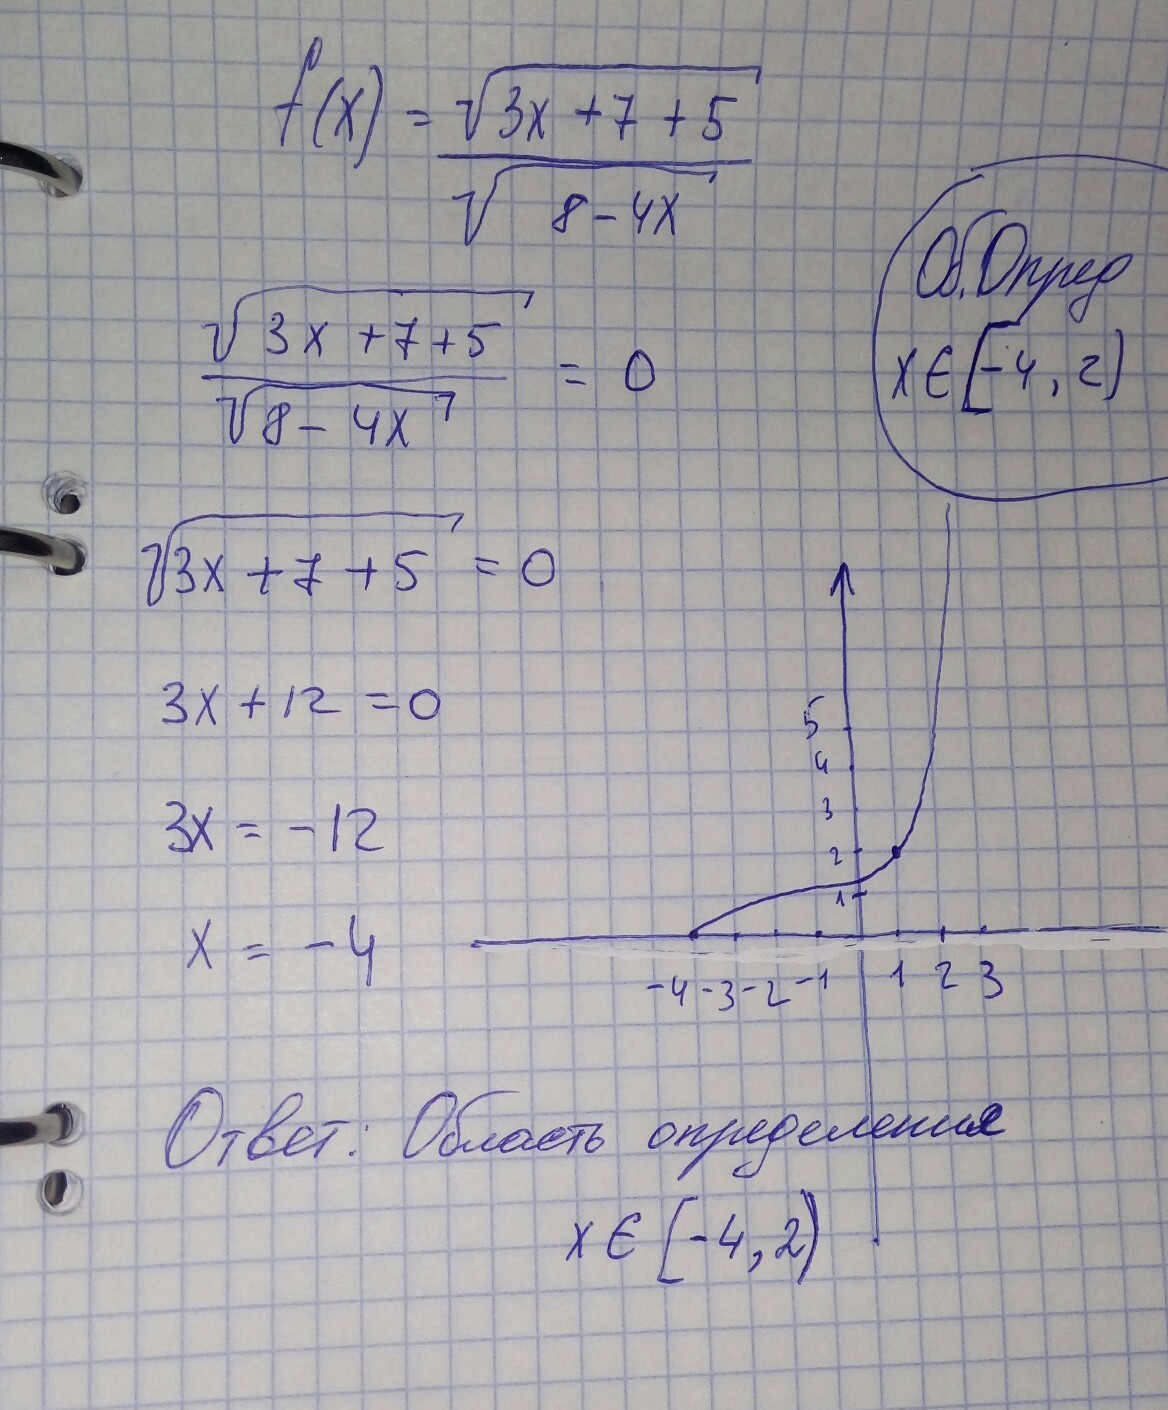 f(x) = √(3x + 7 + 5) / √(8 - 4x)
Об. Опред
x ∈ [-4, 2)
√(3x + 7 + 5) / √(8 - 4x) = 0
√(3x + 7 + 5) = 0
3x + 12 = 0
3x = -12
x = -4
5
4
3
2
1
-4 -3 -2 -1 1 2 3
Ответ: Область определения
x ∈ [-4, 2)